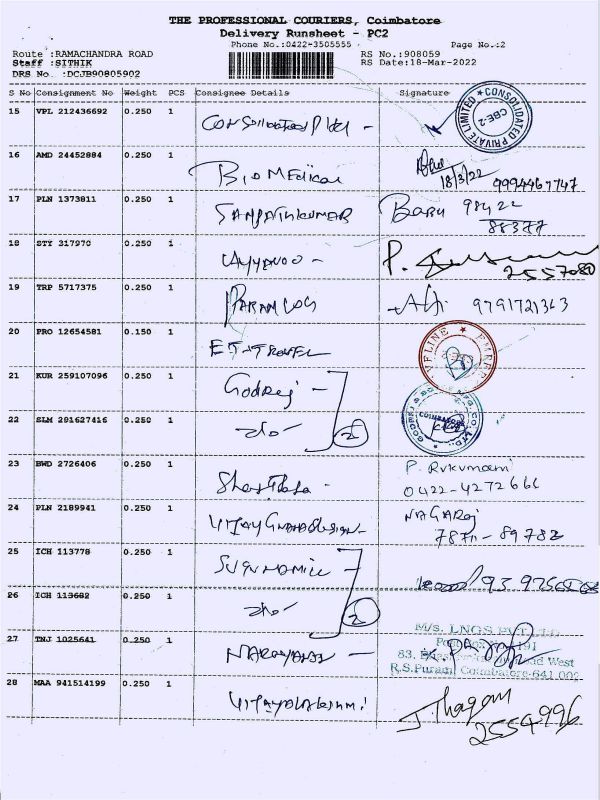 THE PROFESSIONAL COURIERS, Coimbatore
Delivery Runsheet - PC2
Phone No.:0422-3505555
Page No.:2
Route :RAMACHANDRA ROAD
RS No.:908059
Staff :SITHIK
RS Date:18-Mar-2022
DRS No. :DCJB90805902
S No Consignment No Weight PCS Consignee Details Signature
15 VPL 212436692 0.250 1
CONSOLIDATED PRIVATE LIMITED CBE-2
16 AMD 24452884 0.250 1 BioMedical
18/3/22 9994467747
17 PLN 1373811 0.250 1 SAMPATHKUMAR Babu 98422
88377
18 STY 317970 0.250 1 P.
2557080
19 TRP 5717375 0.250 1 9791721363
20 PRO 12654581 0.150 1
21 KUR 259107096 0.250 1 Godrej -
22 SLM 291627416 0.250 1 -do- 2
COIMBATORE
23 BWD 2726406 0.250 1 P. Rukumani
0422-4272666
24 PLN 2189941 0.250 1 NAGARAJ
78711-89782
25 ICH 113778 0.250 1
26 ICH 113682 0.250 1 -do- 2
27 TNJ 1025641 0.250 1 NARAYANAN -
M/s. LNGS PVT LTD
R.S.Puram, Coimbatore-641 002
28 MAA 941514199 0.250 1 Vijayalakshmi
J Thagam
2554996